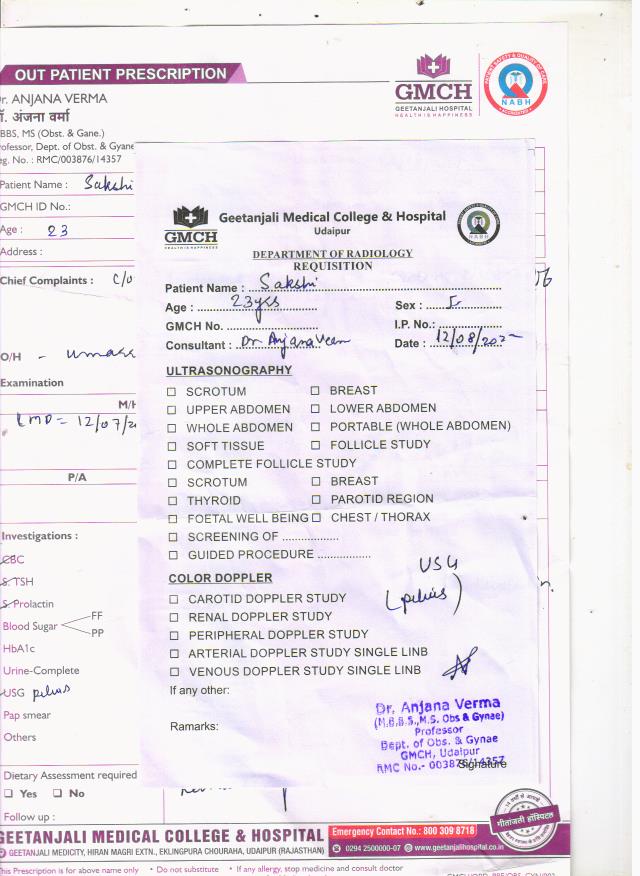 OUT PATIENT PRESCRIPTION
GMCH
GEETANJALI HOSPITAL
HEALTH & HAPPINESS
PATIENT SAFETY & QUALITY OF CARE
NABH
r. ANJANA VERMA
ॉ. अंजना वर्मा
BBS, MS (Obst. & Gane.)
ofessor, Dept. of Obst. & Gyane
eg. No. : RMC/003876/14357
Patient Name : Sakshi
GMCH ID No.:
Age : 23
Address :
Chief Complaints : C/o
O/H -
Examination
M/H
LMP = 12/07/2
P/A
Investigations :
CBC
S. TSH
S. Prolactin
Blood Sugar FF
PP
HbA1c
Urine-Complete
USG pelvis
Pap smear
Others
Dietary Assessment required
Yes No
Follow up :
GMCH
HEALTH & HAPPINESS
Geetanjali Medical College & Hospital
Udaipur
NABH
DEPARTMENT OF RADIOLOGY
REQUISITION
Patient Name : Sakshi
Age : 23yrs Sex : F
GMCH No. .................... I.P. No.: ....................
Consultant : Dr. Anjana Date : 12/08/202
ULTRASONOGRAPHY
SCROTUM BREAST
UPPER ABDOMEN LOWER ABDOMEN
WHOLE ABDOMEN PORTABLE (WHOLE ABDOMEN)
SOFT TISSUE FOLLICLE STUDY
COMPLETE FOLLICLE STUDY
SCROTUM BREAST
THYROID PAROTID REGION
FOETAL WELL BEING CHEST / THORAX
SCREENING OF .................
GUIDED PROCEDURE ................
USG
(pelvis)
COLOR DOPPLER
CAROTID DOPPLER STUDY
RENAL DOPPLER STUDY
PERIPHERAL DOPPLER STUDY
ARTERIAL DOPPLER STUDY SINGLE LINB
VENOUS DOPPLER STUDY SINGLE LINB
If any other:
Remarks:
Dr. Anjana Verma
(M.B.B.S.,M.S. Obs & Gynae)
Professor
Dept. of Obs. & Gynae
GMCH, Udaipur
RMC No.- 003876/14357
Signature
गीतांजली हॉस्पिटल
GEETANJALI MEDICAL COLLEGE & HOSPITAL
Emergency Contact No.: 800 309 8718
GEETANJALI MEDICITY, HIRAN MAGRI EXTN., EKLINGPURA CHOURAHA, UDAIPUR (RAJASTHAN)
0294 2500000-07 www.geetanjalihospital.co.in
his Prescription is for above name only • Do not substitute • If any allergy, stop medicine and consult doctor